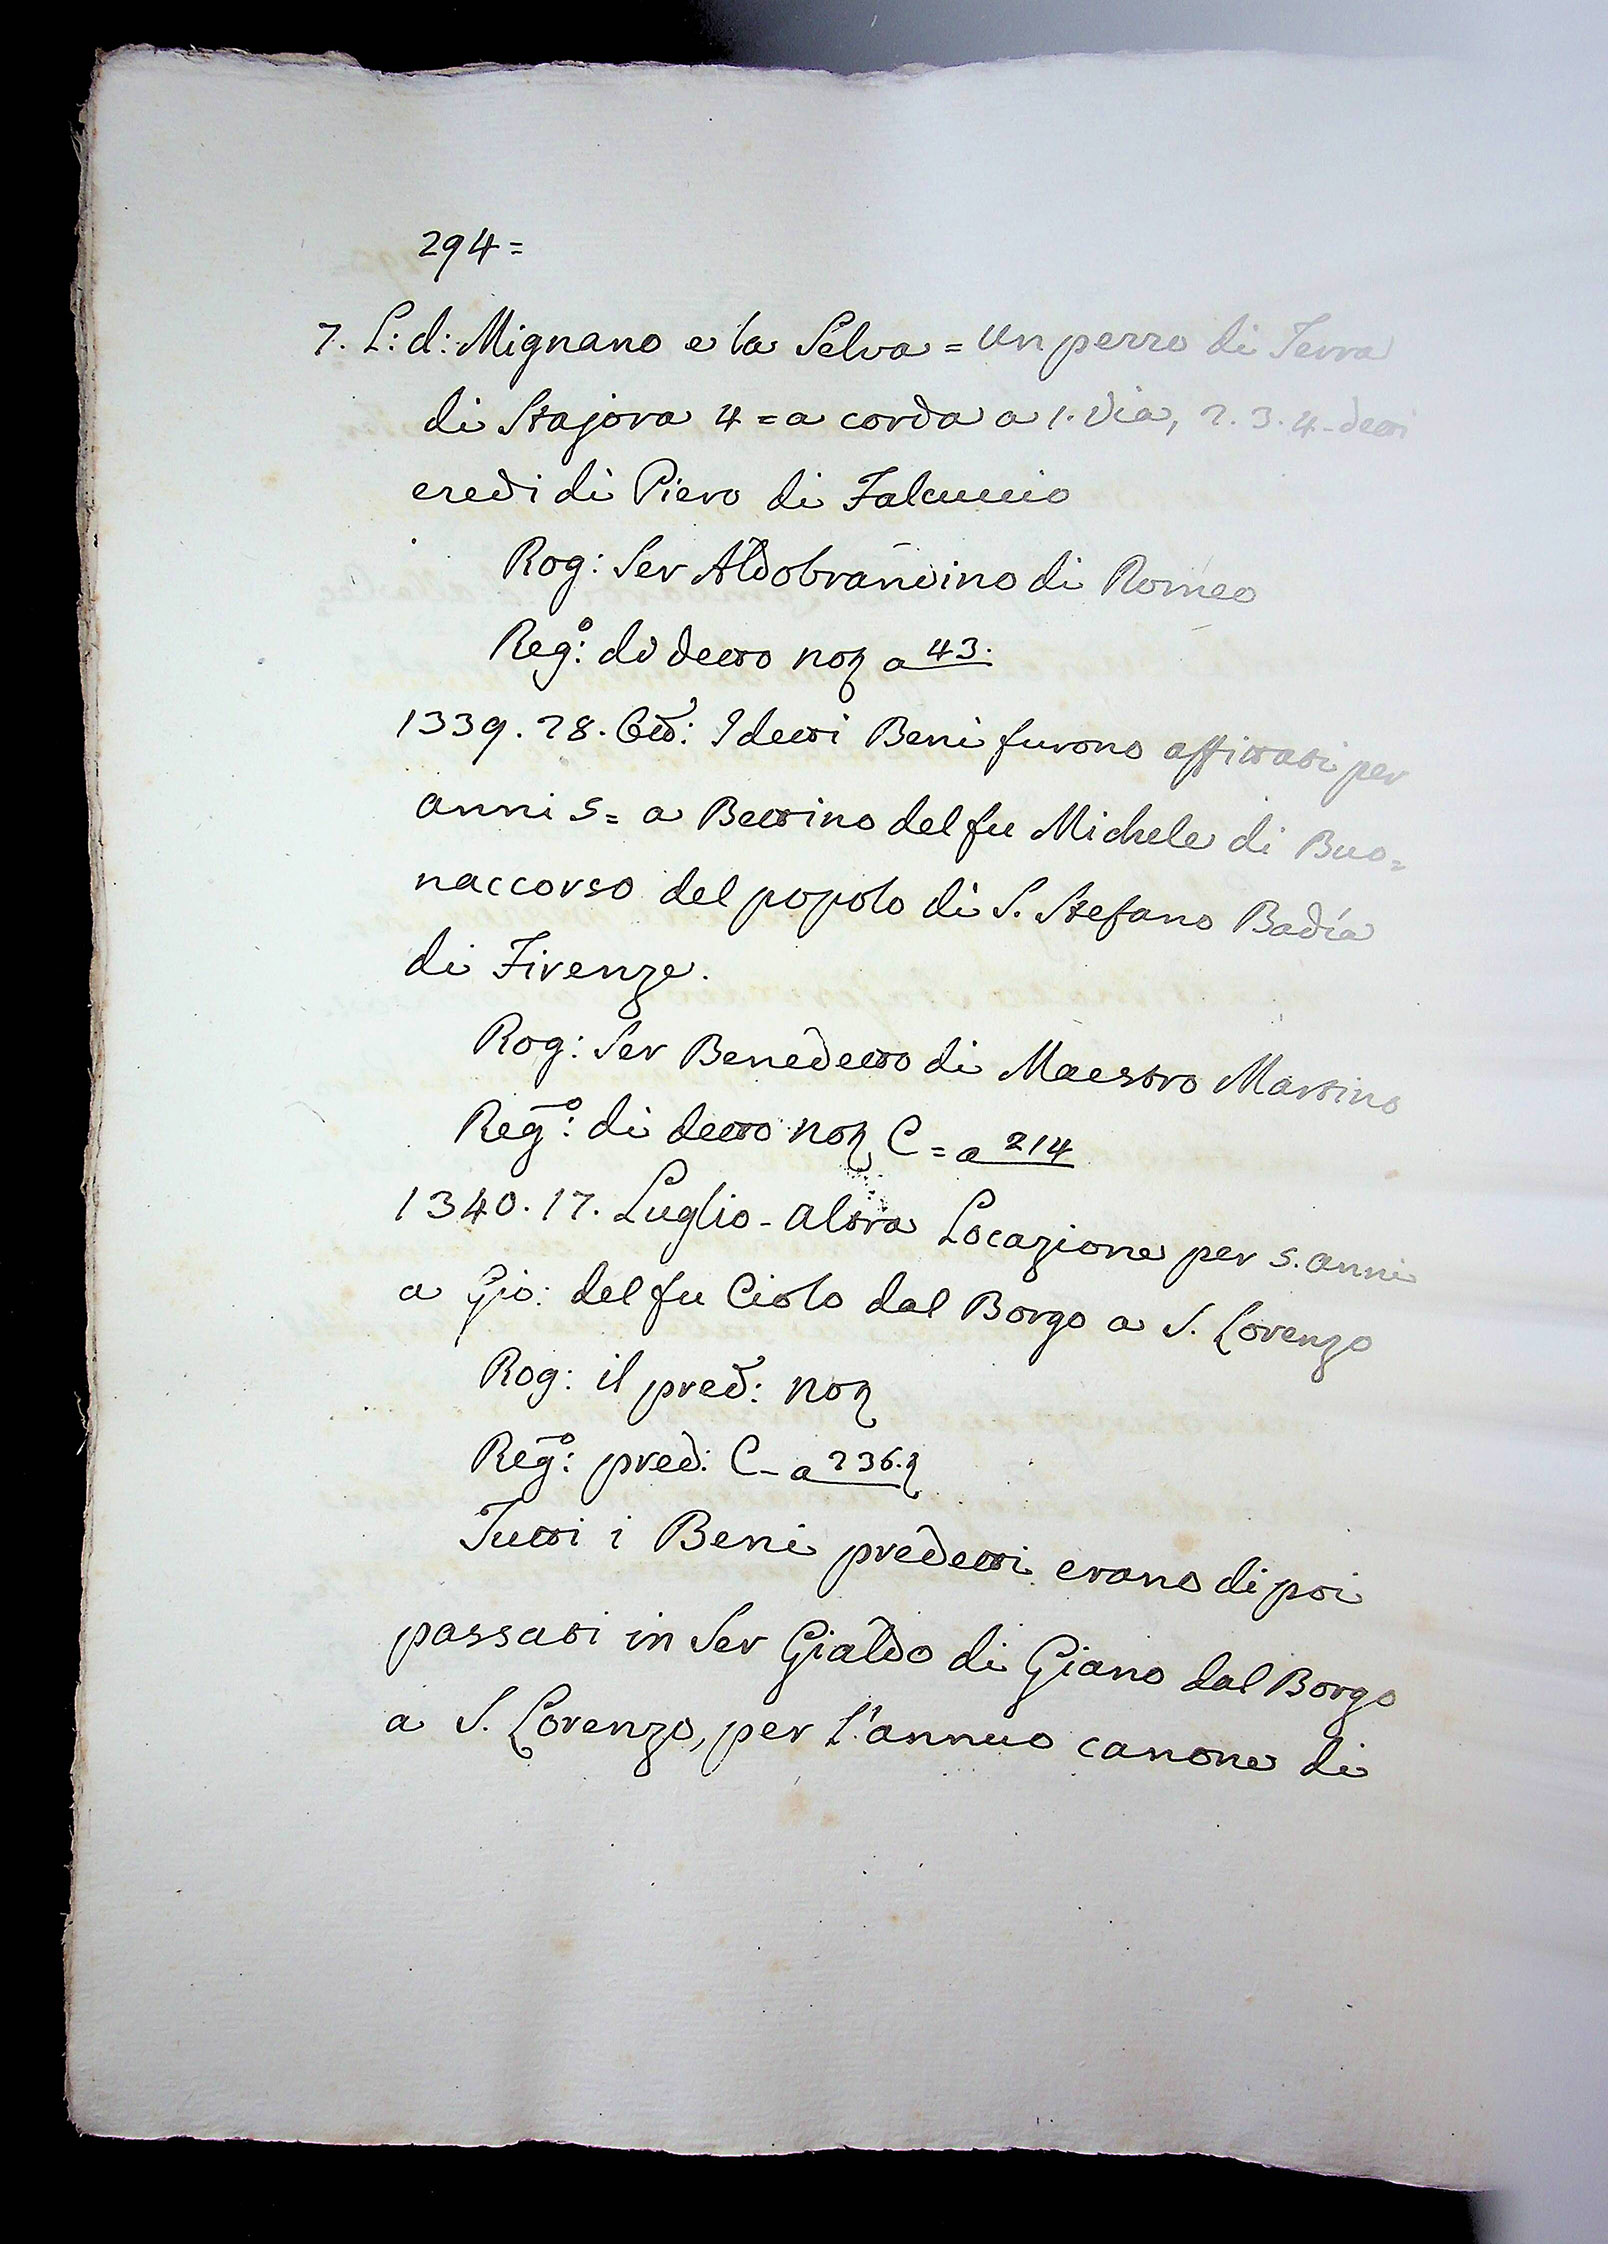 294=
7. L: d: Mignano e la Selva = un pezzo di Terra
di Stajora 4 = a corda a 1. Via, 2. 3. 4 - detti
eredi di Piero di Falcuccio
Rog: Ser Aldobrandino di Romeo
Reg:º di detto not a 43.
1339. 28. Ott: I detti Beni furono affittati per
anni 5 = a Bettino del fu Michele di Buo=
naccorso del popolo di S. Stefano Badía
di Firenze.
Rog: Ser Benedetto di Maestro Martino
Reg:º di detto not C = a 214
1340. 17. Luglio - altra Locazione per 5. anni
a Gio: del fu Ciolo dal Borgo a S. Lorenzo
Rog: il pred: not
Reg:º pred: C - a 236.
Tutti i Beni predetti erano di poi
passati in Ser Gialdo di Giano dal Borgo
a S. Lorenzo, per l'annuo canone di